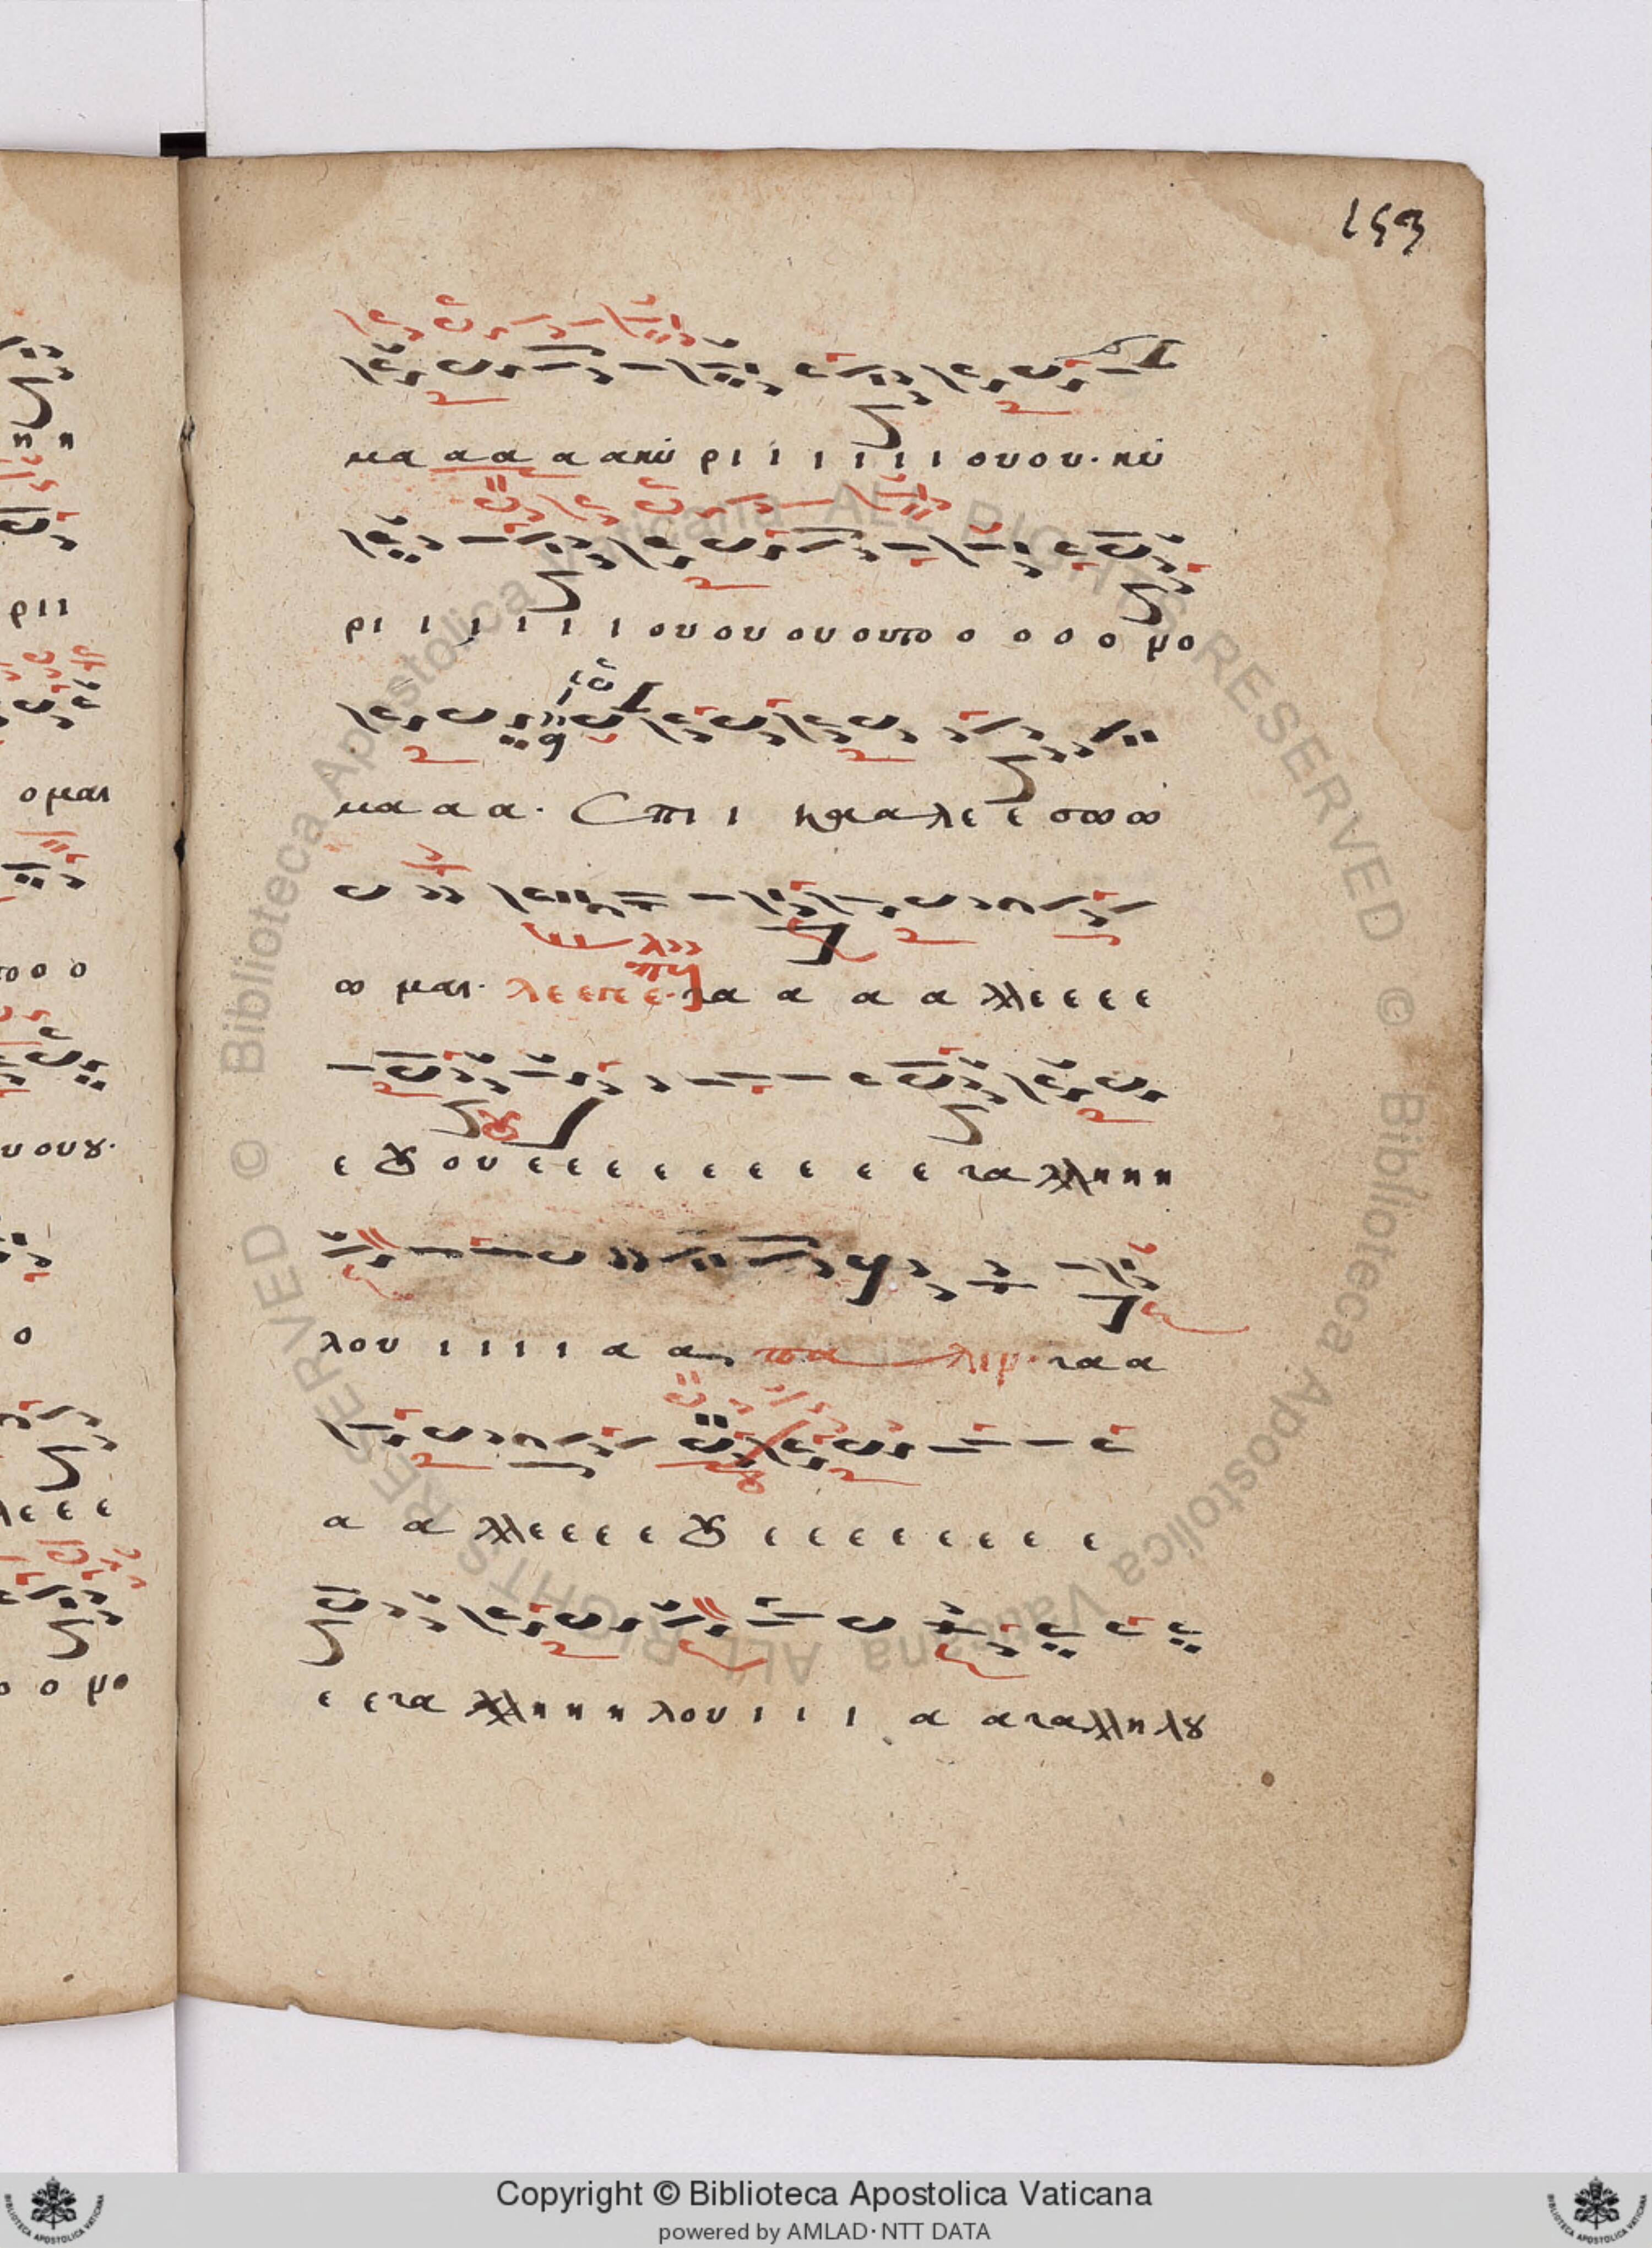 153
μα α α α α κυ ρι ι ι ι ι ι ι ου ου· κυ
ρι ι ι ι ι ι ι ου ου ου ου το ο ο ο ο μο
μα α α· Επι ι καλε ε σω ω
ω μαι· λε ε πε ε· τα α α α λλε ε ε ε
ε ȣ ου ε ε ε ε ε ε ε ε ε τα λλη η η
λου ι ι ι ι α α πα λιμ· τα α
α α λλε ε ε ε ȣ ε ε ε ε ε ε ε ε
ε ε τα λλη η η λου ι ι ι α α τα λλη λȣ
ρι ι
ο μαι
ο ο ο
υ ου ȣ·
ο
λε ε ε
ο ο μο
© Biblioteca Apostolica Vaticana ALL RIGHTS RESERVED © Biblioteca Apostolica Vaticana ALL RIGHTS RESERVED
Copyright © Biblioteca Apostolica Vaticana
powered by AMLAD·NTT DATA